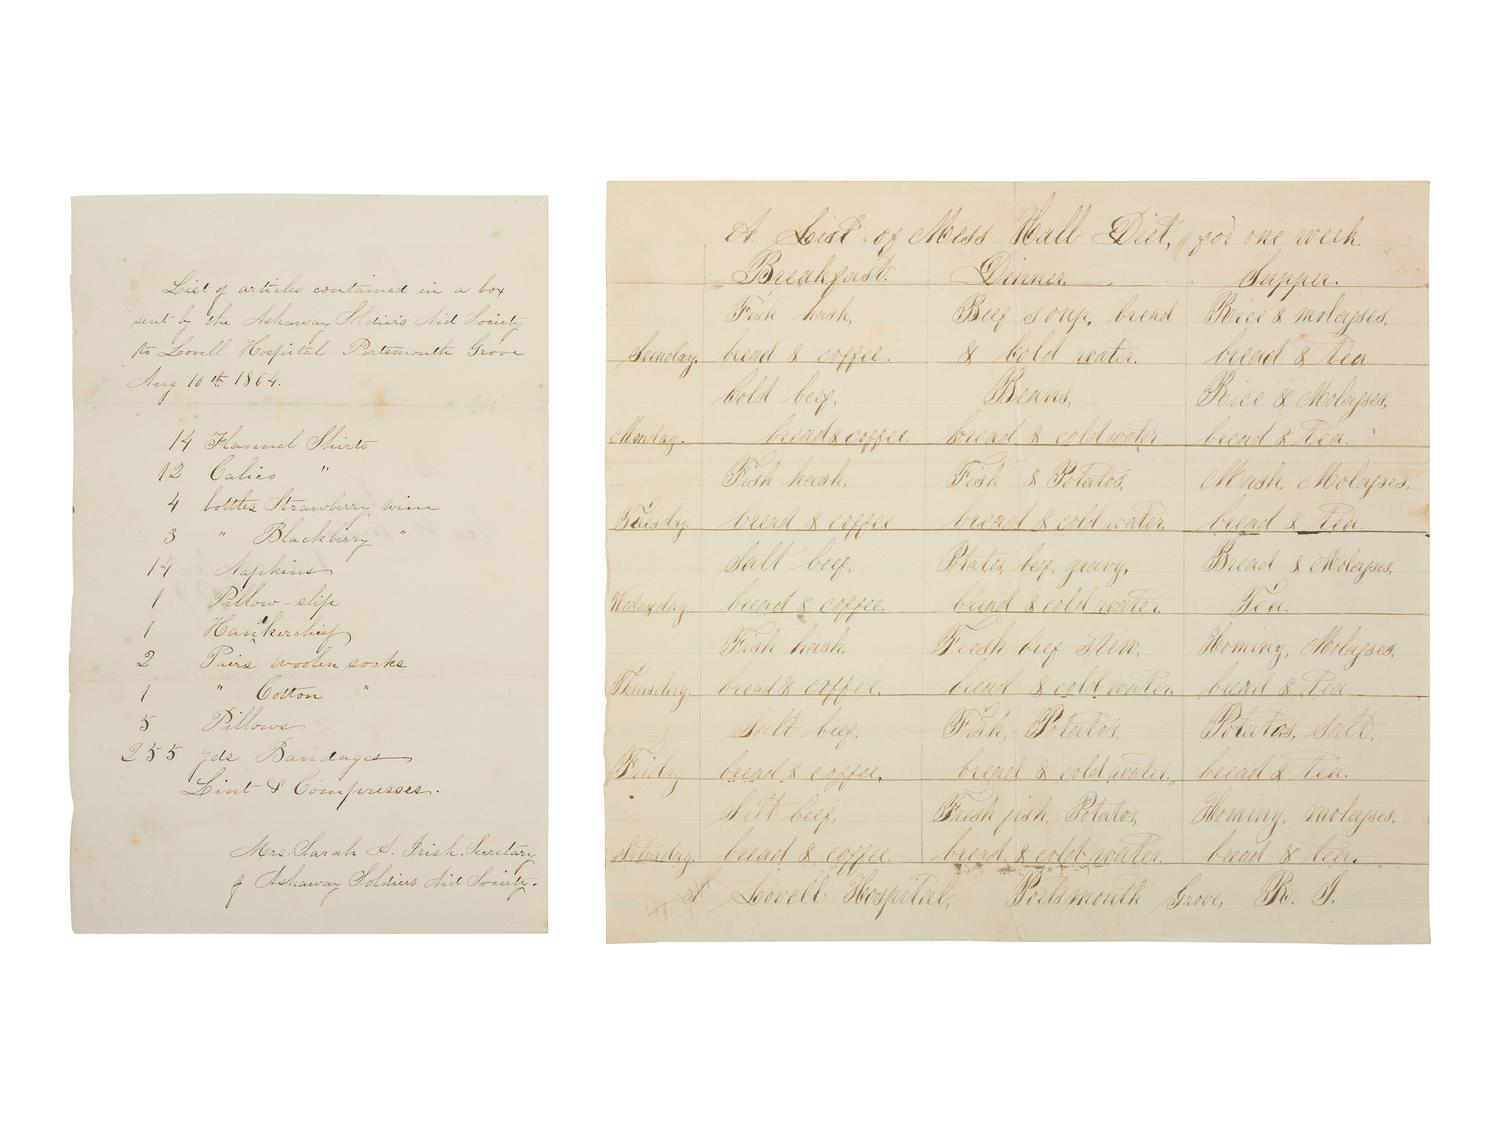 List of articles contained in a box
sent by the Ashaway Soldiers Aid Society
to Lovell Hospital Portsmouth Grove
Aug 10th 1864.
14 Flannel Shirts
12 Calico "
4 bottles Strawberry wine
3 " Blackberry "
14 Napkins
1 Pillow-slip
1 Hankerchief
2 Pairs woolen socks
1 " Cotton "
5 Pillows
255 yds Bandages
Lint & Compresses.
Mrs. Sarah A. Irish Secretary
of Ashaway Soldiers Aid Society.
A List of Mess Hall Diet, for one week.
Breakfast. Dinner. Supper.
Fish hash, Beef soup, bread Rice & molasses,
Sunday. bread & coffee. & cold water. bread & tea.
Cold beef, Beans, Rice & Molasses,
Monday. bread & coffee. bread & cold water. bread & tea.
Fish hash, Fish & Potatos, Mush, Molasses.
Tuesday. bread & coffee bread & cold water. bread & tea.
Salt beef, Potatos, beef, gravy, Bread & Molasses,
Wednesday. bread & coffee. bread & cold water. Tea.
Fish hash Fresh beef stew, Hominy, Molasses,
Thursday. bread & coffee. bread & cold water. bread & tea
Salt beef, Fish, Potatos, Potatos, Salt,
Friday bread & coffee, bread & cold water. bread & tea.
Salt beef, Fresh fish, Potatos, Hominy, molasses,
Saturday. bread & coffee. bread & cold water. bread & tea.
Lovell Hospital, Portsmouth Grove, R. I.